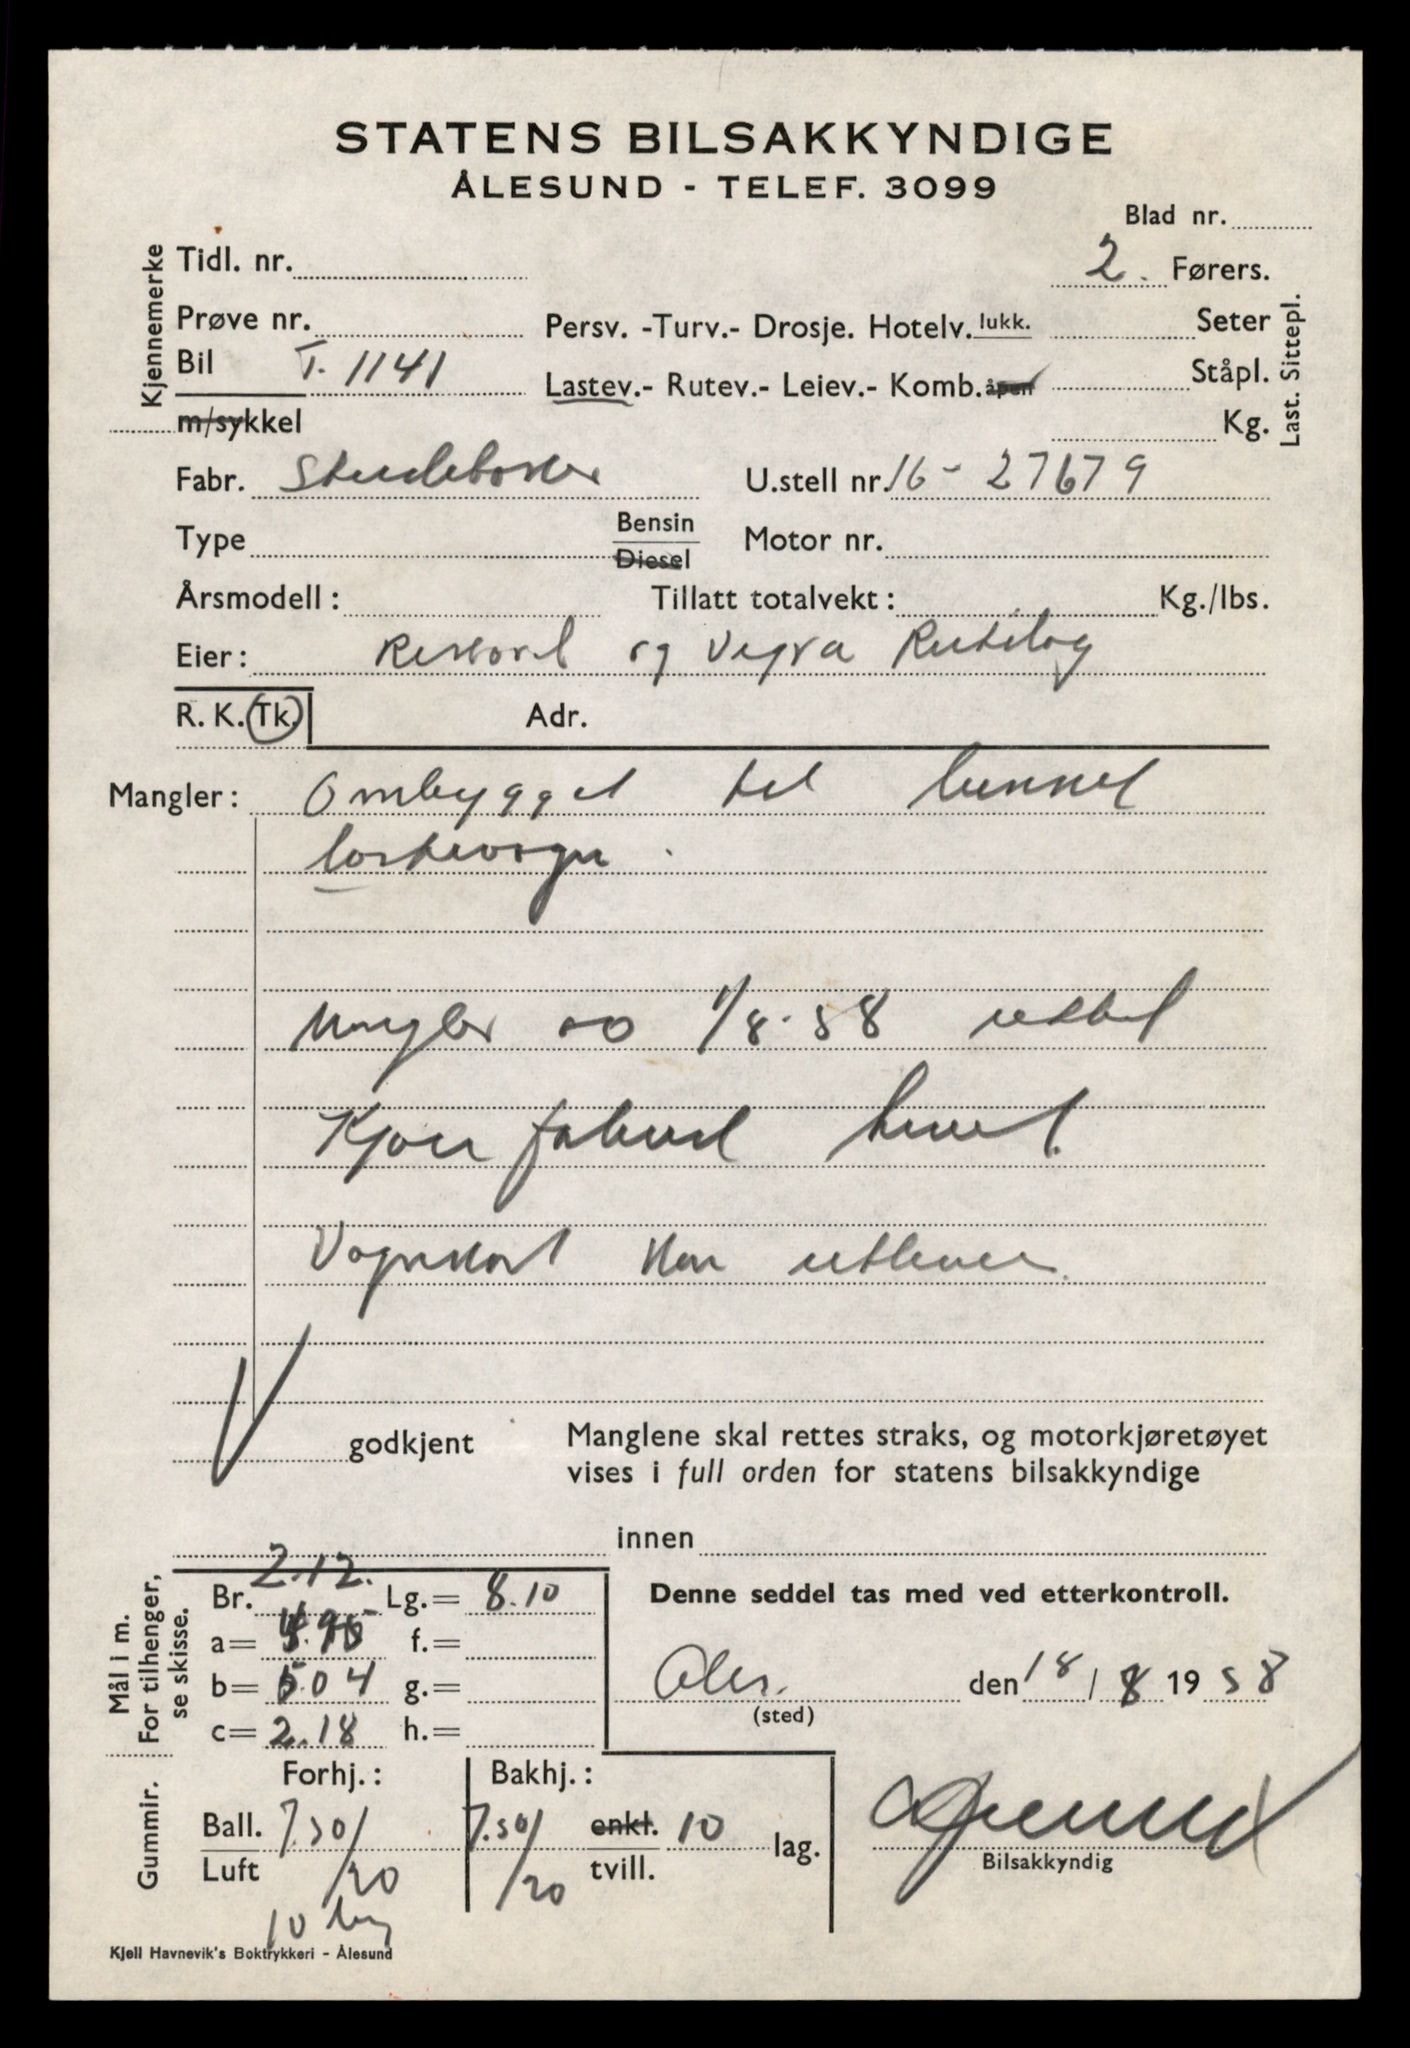 STATENS BILSAKKYNDIGE
ÅLESUND - TELEF. 3099
Blad nr.
Kjennemerke
Tidl. nr.
2. Førers.
Prøve nr.
Persv. -Turv.- Drosje. Hotelv. lukk.
Seter
Bil T. 1141
Lastev.- Rutev.- Leiev.- Komb. åpen
Ståpl.
m/sykkel
Kg.
Last. Sittepl.
Fabr. Studebaker
U.stell nr. 16-27679
Type
Bensin
Diesel
Motor nr.
Årsmodell:
Tillatt totalvekt:
Kg./lbs.
Eier: og Vegra Rutelag
R. K. Tk.
Adr.
Mangler: Ombygget til
lastevogn.
Mangler 1/8-58
Vognkort kan utleveres.
V godkjent
Manglene skal rettes straks, og motorkjøretøyet
vises i full orden for statens bilsakkyndige
innen
Mål i m.
For tilhenger,
se skisse.
Br. 2.12. Lg.= 8.10
a= f.=
b= 5.04 g.=
c= 2.18 h.=
Denne seddel tas med ved etterkontroll.
Ales. den 18/8 1958
(sted)
Gummir.
Forhj.: Bakhj.:
Ball. 7.50/ 7.50/ enkl. 10 lag.
Luft /20 /20 tvill.
10 lag
Bilsakkyndig
Kjell Havnevik's Boktrykkeri - Ålesund